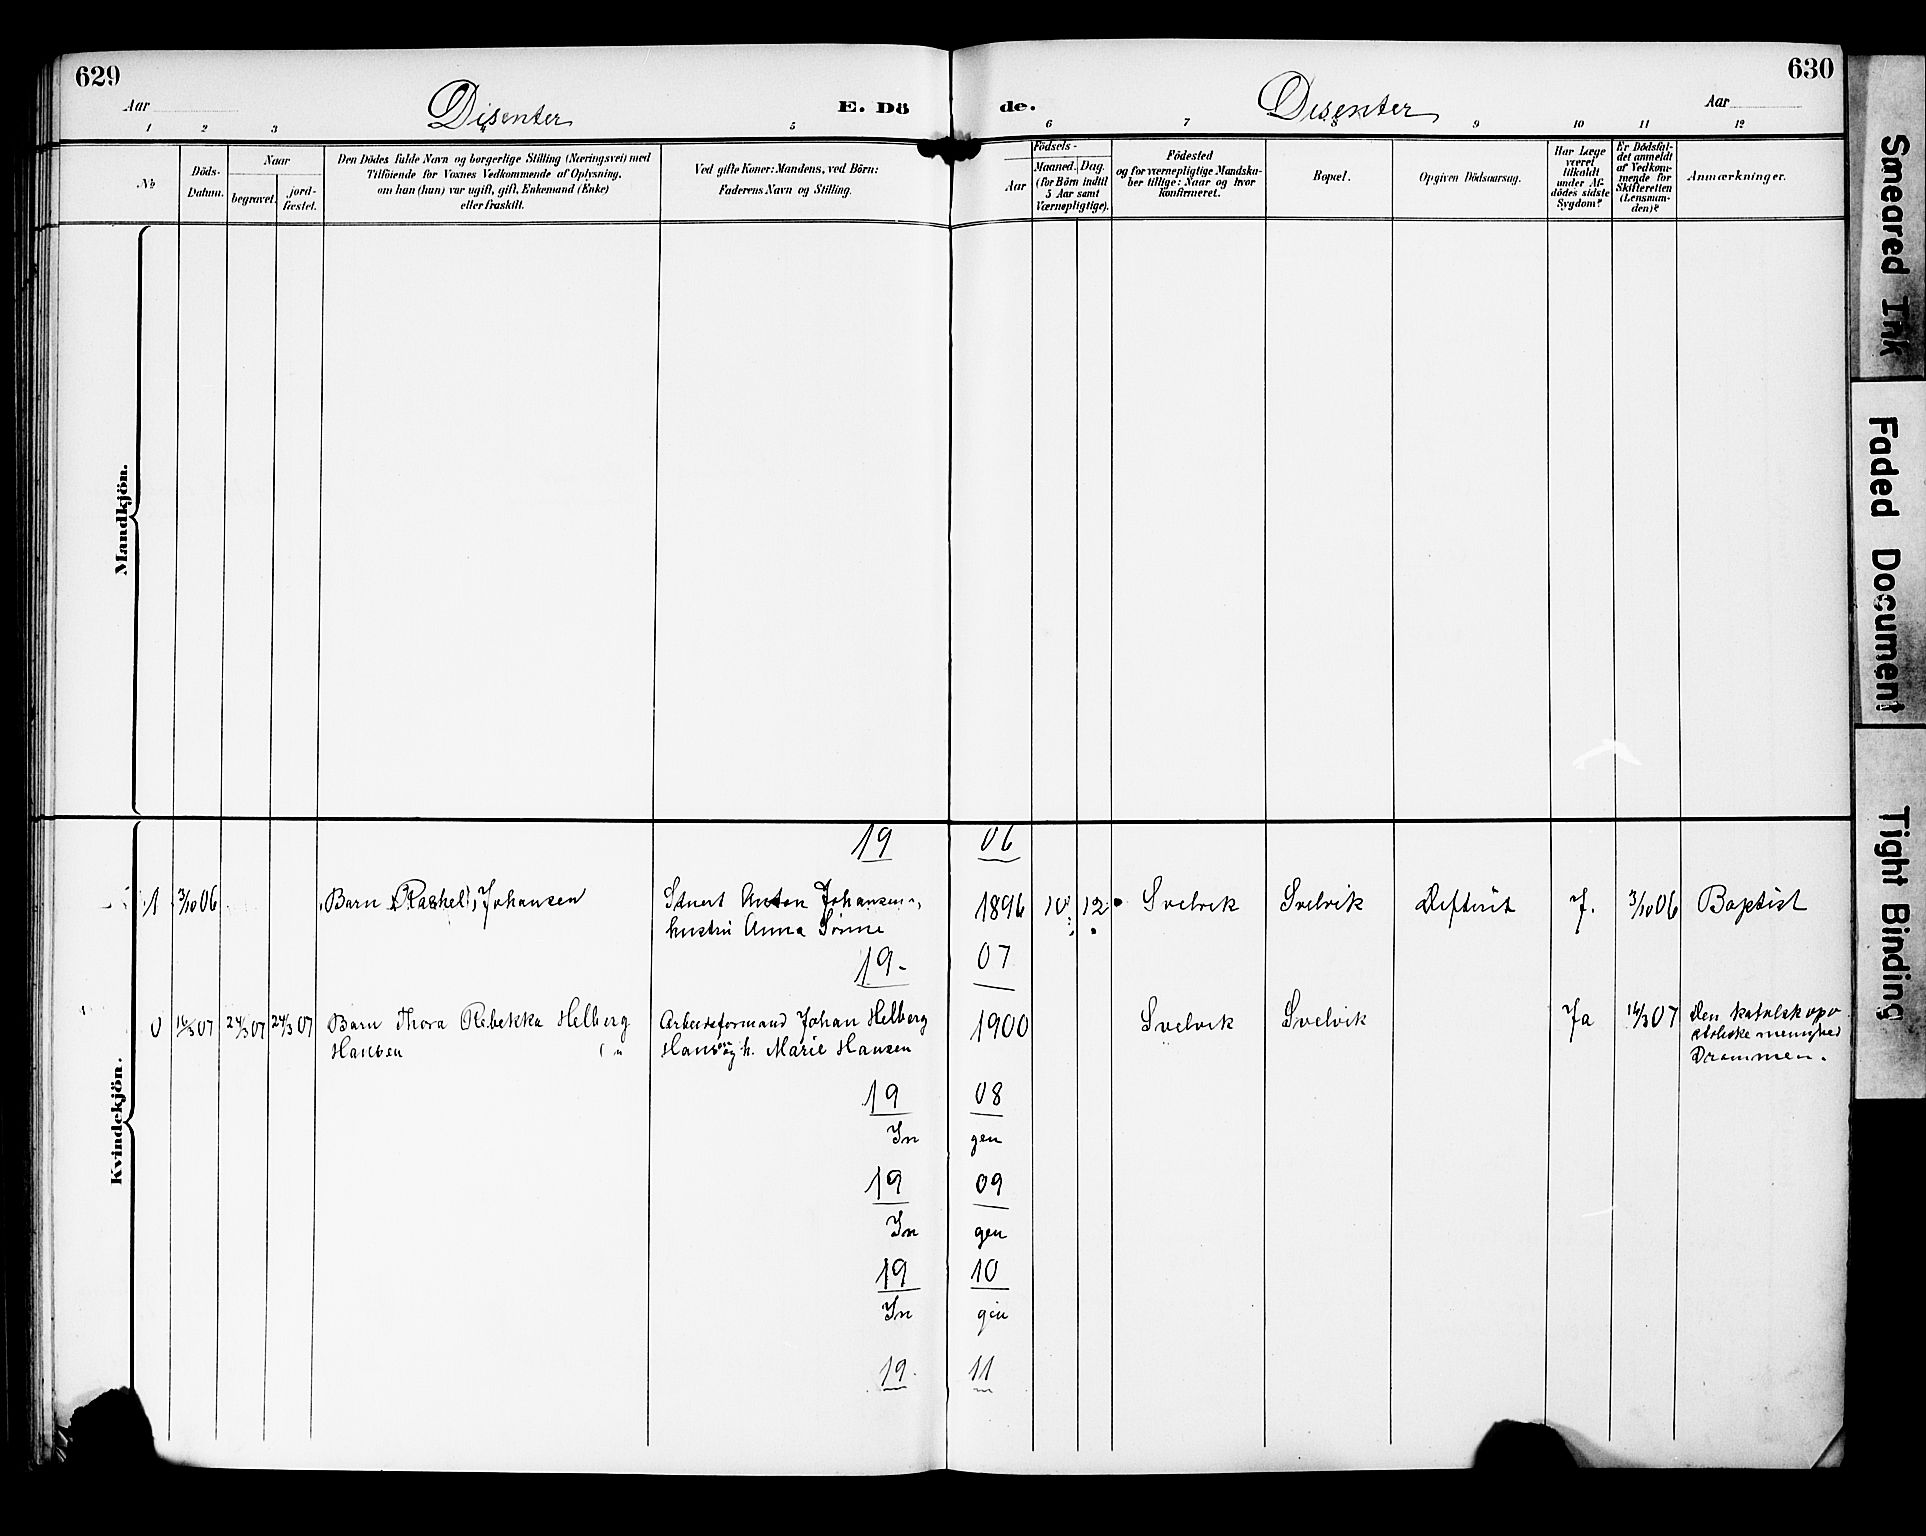 629
630
Aar
Disenter
E. Dö
de.
Disenter
Aar
1 2 3 4 5 6 7 8 9 10 11 12
№
Döds-
Datum.
Naar
begravet.
jord-
fæstet.
Den Dödes fulde Navn og borgerlige Stilling (Næringsvei) med
Tilföiende for Voxnes Vedkommende af Oplysning,
om han (hun) var ugift, gift, Enkemand (Enke)
eller fraskilt.
Ved gifte Koner: Mandens, ved Börn:
Faderens Navn og Stilling.
Födsels-
Aar
Maaned. Dag.
(for Börn indtil
5 Aar samt
Værnepligtige).
Födested
og for værnepligtige Mandska-
ber tillige: Naar og hvor
konfirmeret.
Bopæl.
Opgiven Dödsaarsag.
Har Læge
været
tilkaldt
under Af-
dödes sidste
Sygdom?
Er Dödsfal-
det anmeldt
af Vedkom-
mende for
Skifteretten
(Lensman-
den)?
Anmærkninger.
Mandkjön.
Kvindekjön.
19 06
1 3/10 06 Barn Rachel Johansen Anton Johansen 1896 10 12 Svelvik Svelvik Difterit J. 3/10 06 Baptist
hustru Anna
19 07
0 16/3 07 24/3 07 24/3 07 Barn Thora Rebekka Helberg Arbeidsformand Johan Helberg 1900 Svelvik Svelvik Ja 16/3 07 Den katolsk apo
Hansen Hansen og h. Marie Hansen stoliske menighed
Drammen.
19 08
In gen
19 09
In gen
19 10
In gen
19 11
Smeared Ink
Faded Document
Tight Binding